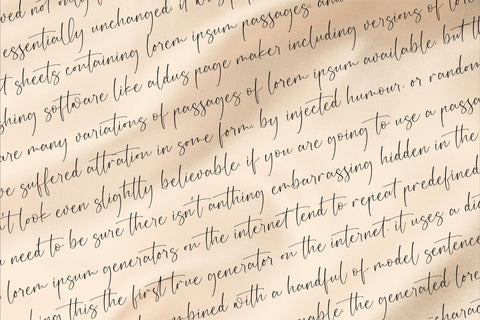 ved not only
essentially unchanged. it was p
t sheets containing lorem ipsum passages, and
shing software like aldus page maker including versions of lorem
are many variations of passages of lorem ipsum available, but th
ve suffered attration in some form, by injected humour, or random
n't look even slightly believable. if you are going to use a passa
u need to be sure there isn't anthing embarrassing hidden in the
lorem ipsum generators on the internet tend to repeat predefined
king this the first true generator on the internet. it uses a dic
ombined with a handful of model sentence
nable. the generated lore
characte